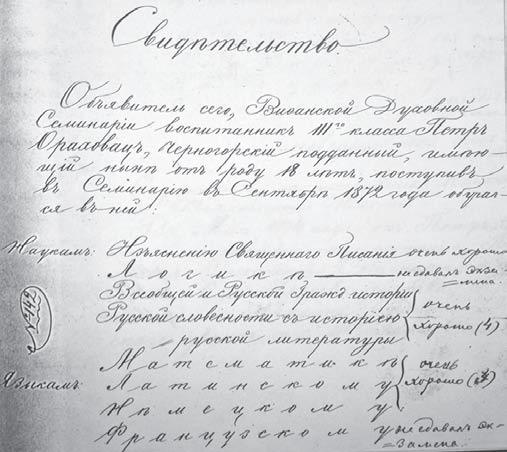 Свидѣтельство.
Объявитель сего, Виѳанской Духовной
Семинаріи воспитанникъ III го класса Петръ
Ораховац, Черногорскій подданный, имѣю-
щій нынѣ отъ роду 18 лѣтъ, поступивъ
въ Семинарію въ Сентябрѣ 1872 года обучал-
ся въ ней:
Наукамъ: Изъясненію Священнаго Писанія очень хорошо
Логикѣ — не сдавалъ экза-
мена.
Всеобщей и Русской Гражд исторіи
Русской словесности съ исторіею очень
= русской литературы хорошо (4)
№ 742
Математикѣ очень
Языкамъ: Латинскому хорошо
Нѣмецкому
Французскому не сдавалъ эк=
замена.